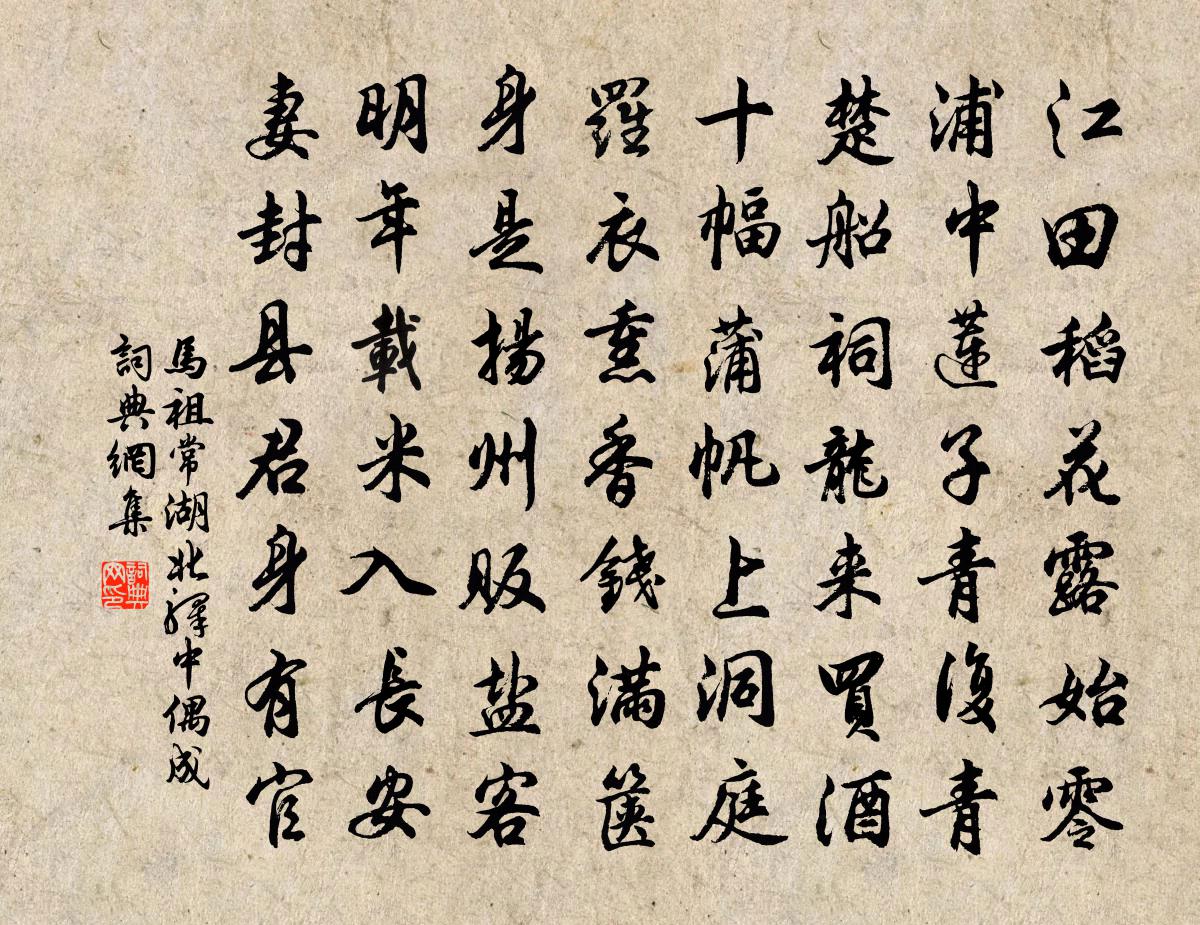 江田稻花露始零
浦中蓮子青復青
楚船祠龍来買酒
十幅蒲帆上洞庭
羅衣熏香錢滿篋
身是揚州販盐客
明年載米入長安
妻封县君身有官
馬祖常湖北驛中偶成
詞典網集
詞典网印